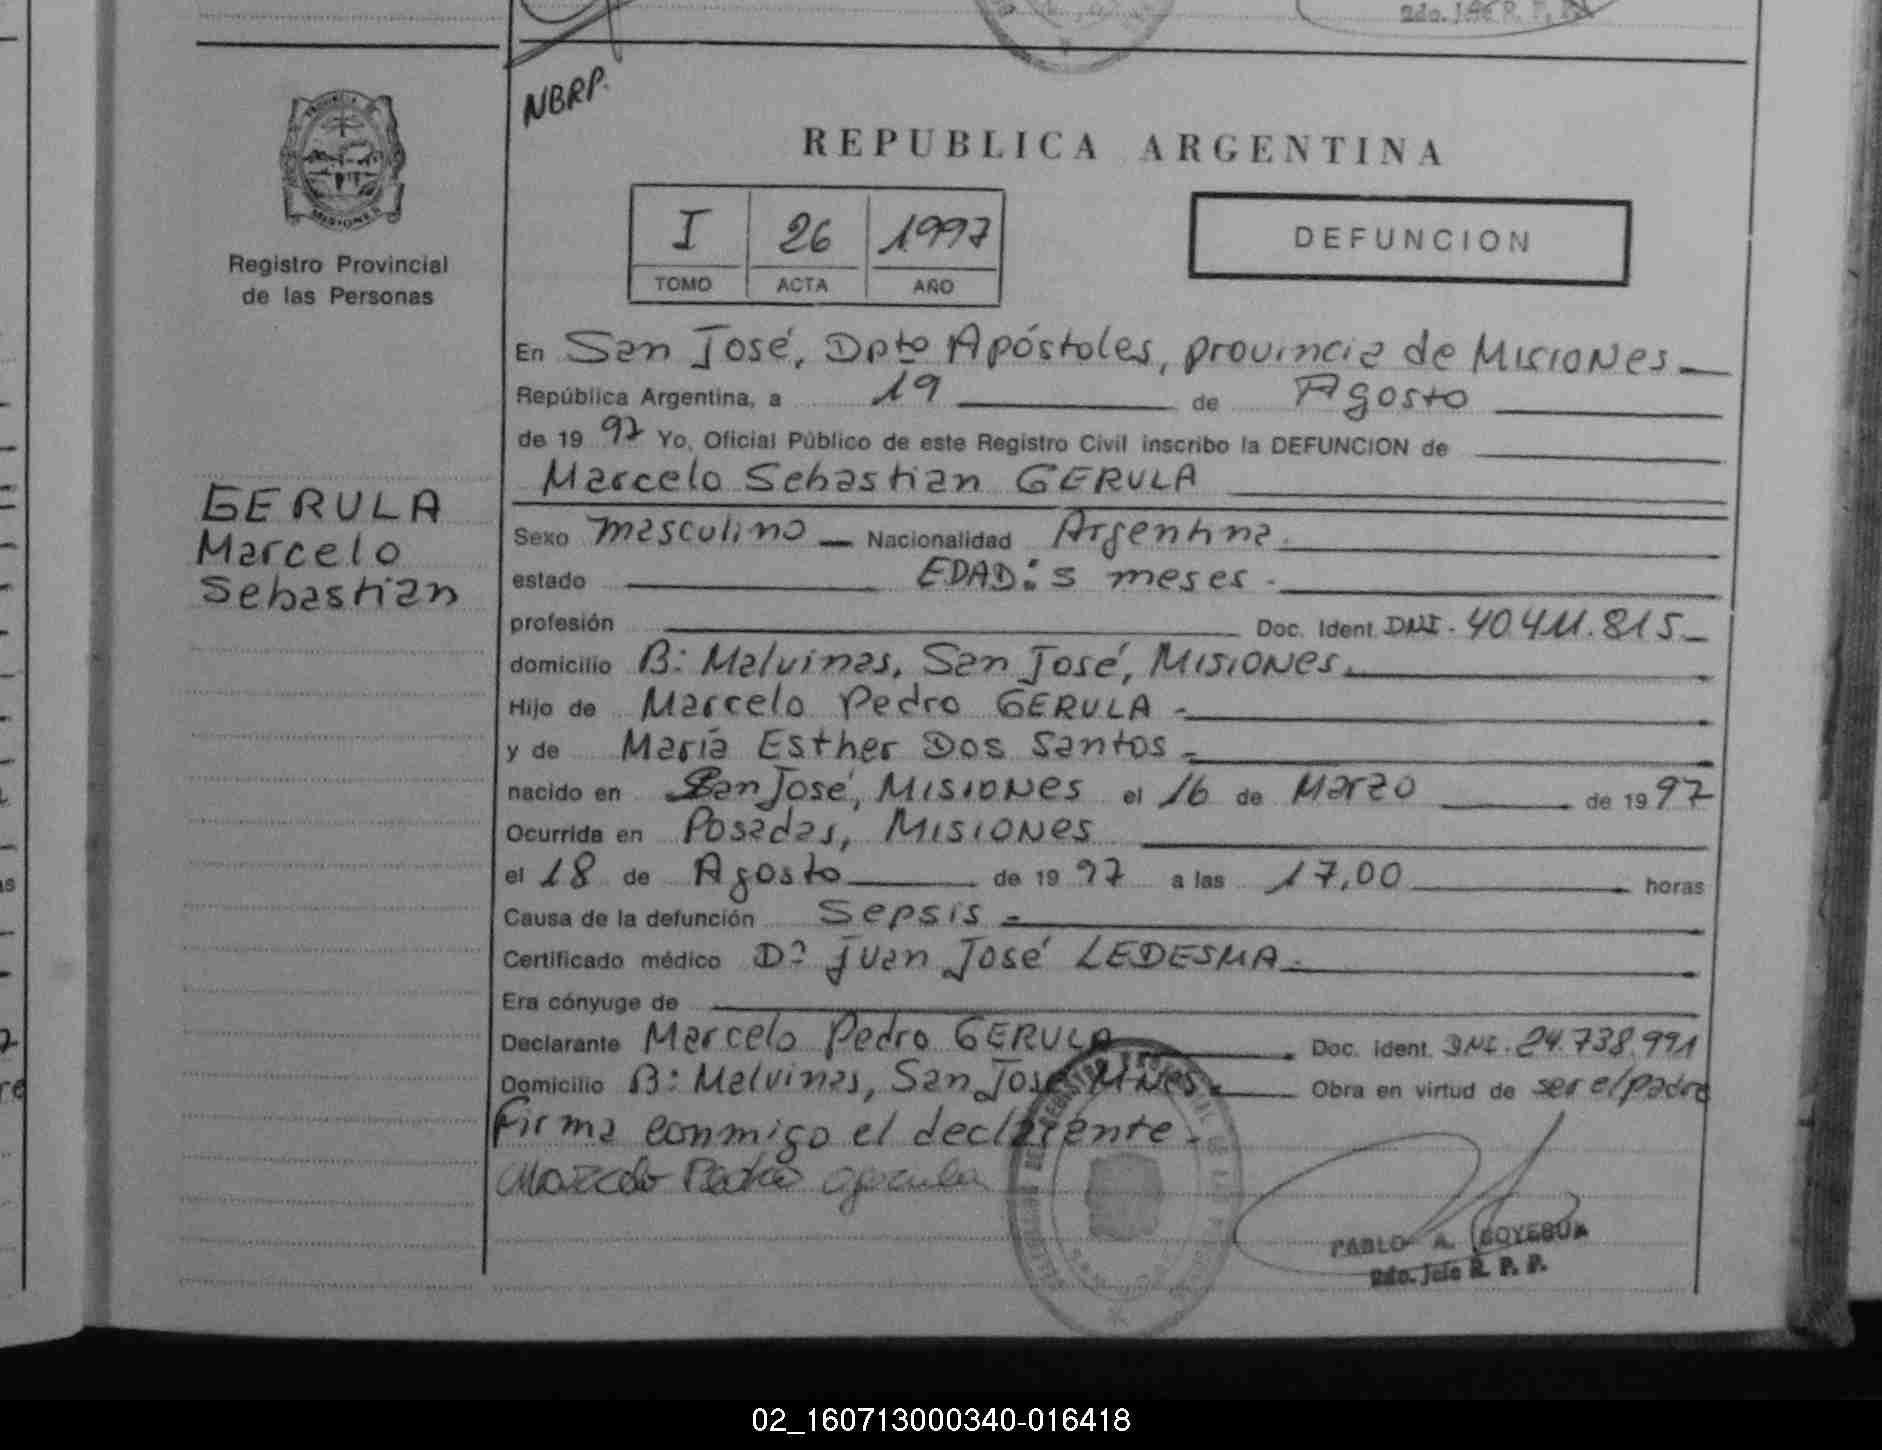 2do. Jefe R. P. P.
NBRP.
REPUBLICA ARGENTINA
I 26 1997
TOMO ACTA AÑO
DEFUNCION
MISIONES
Registro Provincial
de las Personas
GERULA
Marcelo
Sebastian
En San José, Dpto Apóstoles, provincia de Misiones
República Argentina, a 19 de Agosto
de 1997 Yo, Oficial Público de este Registro Civil inscribo la DEFUNCION de
Marcelo Sebastian GERULA
Sexo masculino Nacionalidad Argentina
estado EDAD: 5 meses.
profesión Doc. Ident. DNI. 40.411.815
domicilio B: Malvinas, San José, Misiones.
Hijo de Marcelo Pedro GERULA
y de María Esther Dos Santos
nacido en San José, Misiones el 16 de Marzo de 1997
Ocurrida en Posadas, Misiones
el 18 de Agosto de 1997 a las 17,00 horas
Causa de la defunción Sepsis
Certificado médico Dr Juan José LEDESMA
Era cónyuge de
Declarante Marcelo Pedro GERULA Doc. ident. DNI. 24.738.991
Domicilio B: Malvinas, San José Mnes. Obra en virtud de ser el padre
Firma conmigo el declarante.
Marcelo Pedro Gerula
PABLO A.
2do. Jefe R. P. P.
02_160713000340-016418